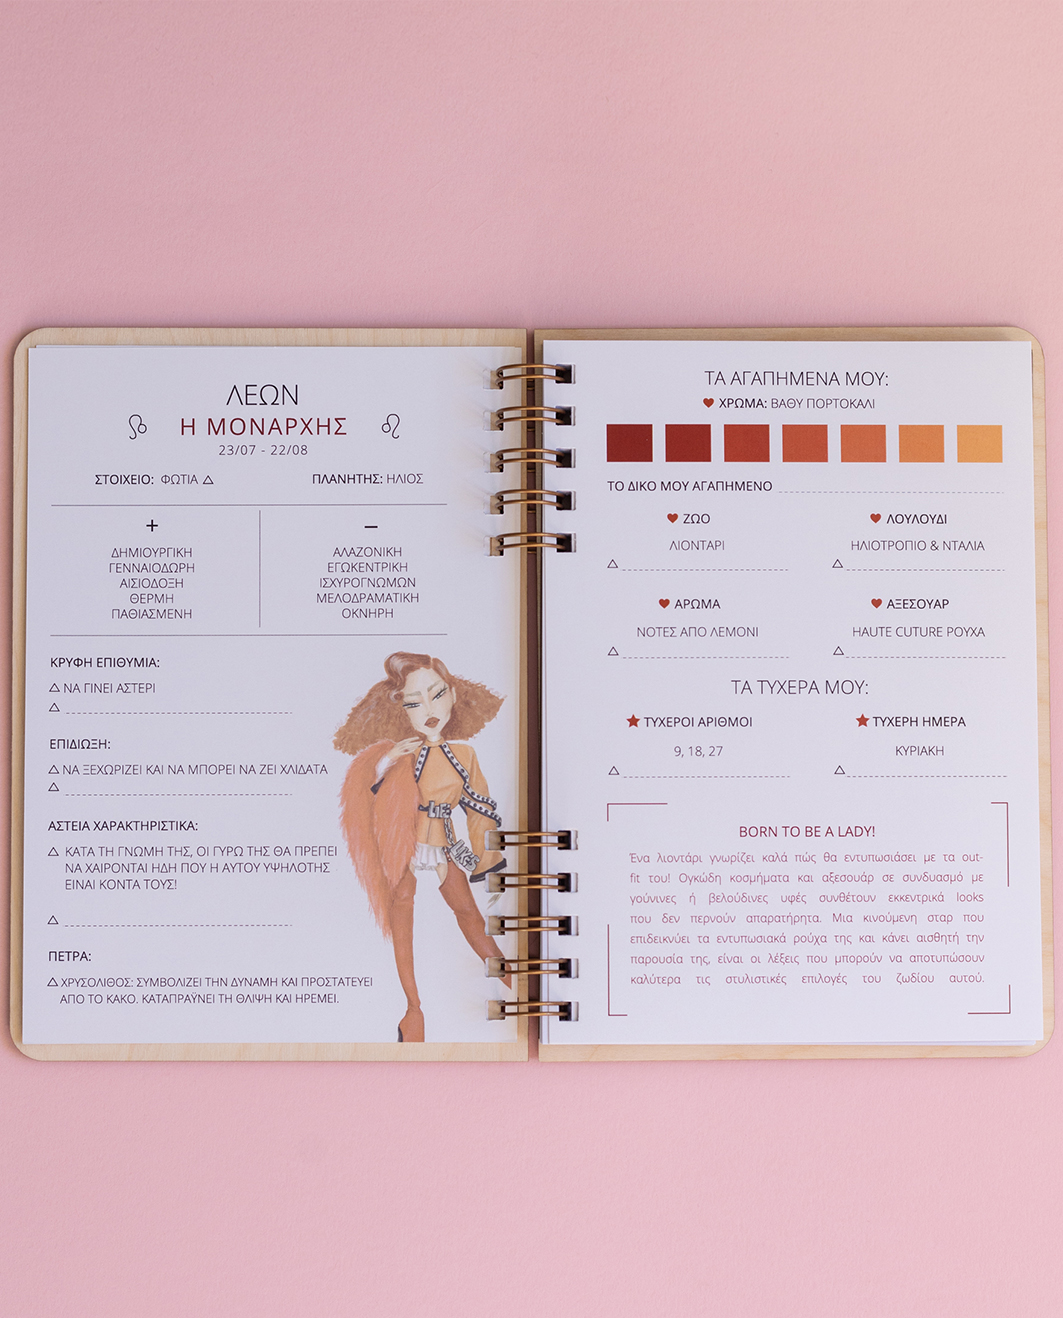 ΛΕΩΝ
Η ΜΟΝΑΡΧΗΣ
23/07 - 22/08
ΣΤΟΙΧΕΙΟ: ΦΩΤΙΑ
ΠΛΑΝΗΤΗΣ: ΗΛΙΟΣ
+
ΔΗΜΙΟΥΡΓΙΚΗ
ΓΕΝΝΑΙΟΔΩΡΗ
ΑΙΣΙΟΔΟΞΗ
ΘΕΡΜΗ
ΠΑΘΙΑΣΜΕΝΗ
–
ΑΛΑΖΟΝΙΚΗ
ΕΓΩΚΕΝΤΡΙΚΗ
ΙΣΧΥΡΟΓΝΩΜΩΝ
ΜΕΛΟΔΡΑΜΑΤΙΚΗ
ΟΚΝΗΡΗ
ΚΡΥΦΗ ΕΠΙΘΥΜΙΑ:
ΝΑ ΓΙΝΕΙ ΑΣΤΕΡΙ
ΕΠΙΔΙΩΞΗ:
ΝΑ ΞΕΧΩΡΙΖΕΙ ΚΑΙ ΝΑ ΜΠΟΡΕΙ ΝΑ ΖΕΙ ΧΛΙΔΑΤΑ
ΑΣΤΕΙΑ ΧΑΡΑΚΤΗΡΙΣΤΙΚΑ:
ΚΑΤΑ ΤΗ ΓΝΩΜΗ ΤΗΣ, ΟΙ ΓΥΡΩ ΤΗΣ ΘΑ ΠΡΕΠΕΙ
ΝΑ ΧΑΙΡΟΝΤΑΙ ΗΔΗ ΠΟΥ Η ΑΥΤΟΥ ΥΨΗΛΟΤΗΣ
ΕΙΝΑΙ ΚΟΝΤΑ ΤΟΥΣ!
ΠΕΤΡΑ:
ΧΡΥΣΟΛΙΘΟΣ: ΣΥΜΒΟΛΙΖΕΙ ΤΗΝ ΔΥΝΑΜΗ ΚΑΙ ΠΡΟΣΤΑΤΕΥΕΙ
ΑΠΟ ΤΟ ΚΑΚΟ. ΚΑΤΑΠΡΑΫΝΕΙ ΤΗ ΘΛΙΨΗ ΚΑΙ ΗΡΕΜΕΙ.
LIES
ΤΑ ΑΓΑΠΗΜΕΝΑ ΜΟΥ:
ΧΡΩΜΑ: ΒΑΘΥ ΠΟΡΤΟΚΑΛΙ
ΤΟ ΔΙΚΟ ΜΟΥ ΑΓΑΠΗΜΕΝΟ
ΖΩΟ
ΛΙΟΝΤΑΡΙ
ΛΟΥΛΟΥΔΙ
ΗΛΙΟΤΡΟΠΙΟ & ΝΤΑΛΙΑ
ΑΡΩΜΑ
ΝΟΤΕΣ ΑΠΟ ΛΕΜΟΝΙ
ΑΞΕΣΟΥΑΡ
HAUTE CUTURE ΡΟΥΧΑ
ΤΑ ΤΥΧΕΡΑ ΜΟΥ:
ΤΥΧΕΡΟΙ ΑΡΙΘΜΟΙ
9, 18, 27
ΤΥΧΕΡΗ ΗΜΕΡΑ
ΚΥΡΙΑΚΗ
BORN TO BE A LADY!
Ένα λιοντάρι γνωρίζει καλά πώς θα εντυπωσιάσει με τα out-
fit του! Ογκώδη κοσμήματα και αξεσουάρ σε συνδυασμό με
γούνινες ή βελούδινες υφές συνθέτουν εκκεντρικά looks
που δεν περνούν απαρατήρητα. Μια κινούμενη σταρ που
επιδεικνύει τα εντυπωσιακά ρούχα της και κάνει αισθητή την
παρουσία της, είναι οι λέξεις που μπορούν να αποτυπώσουν
καλύτερα τις στυλιστικές επιλογές του ζωδίου αυτού.